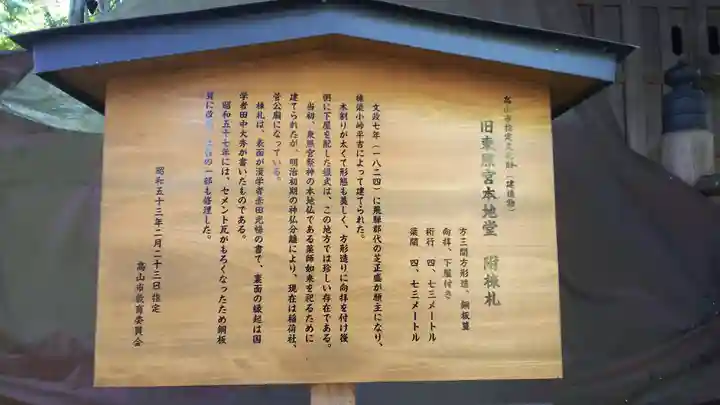 高山市指定文化財（建造物）
旧東照宮本地堂　附棟札
方三間方形造、銅板葺
向拝、下屋付き
桁行　四、七三メートル
梁間　四、七三メートル
文政七年（一八二四）に飛騨郡代の芝正盛が願主になり、
棟梁小峠平吉によって建てられた。
木割りが太くて形態も美しく、方形造りに向拝を付け後
側に下屋を配した様式は、この地方では珍しい存在である。
当初、東照宮祭神の本地仏である薬師如来を祀るために
建てられたが、明治初期の神仏分離により、現在は稲荷社、
菅公廟になっている。
棟札は、表面が漢学者赤田光暢の書で、裏面の縁起は国
学者田中大秀が書いたものである。
昭和五十七年には、セメント瓦がもろくなったため銅板
葺に改
の一部も修理した。
昭和五十三年二月二十三日指定
高山市教育委員会